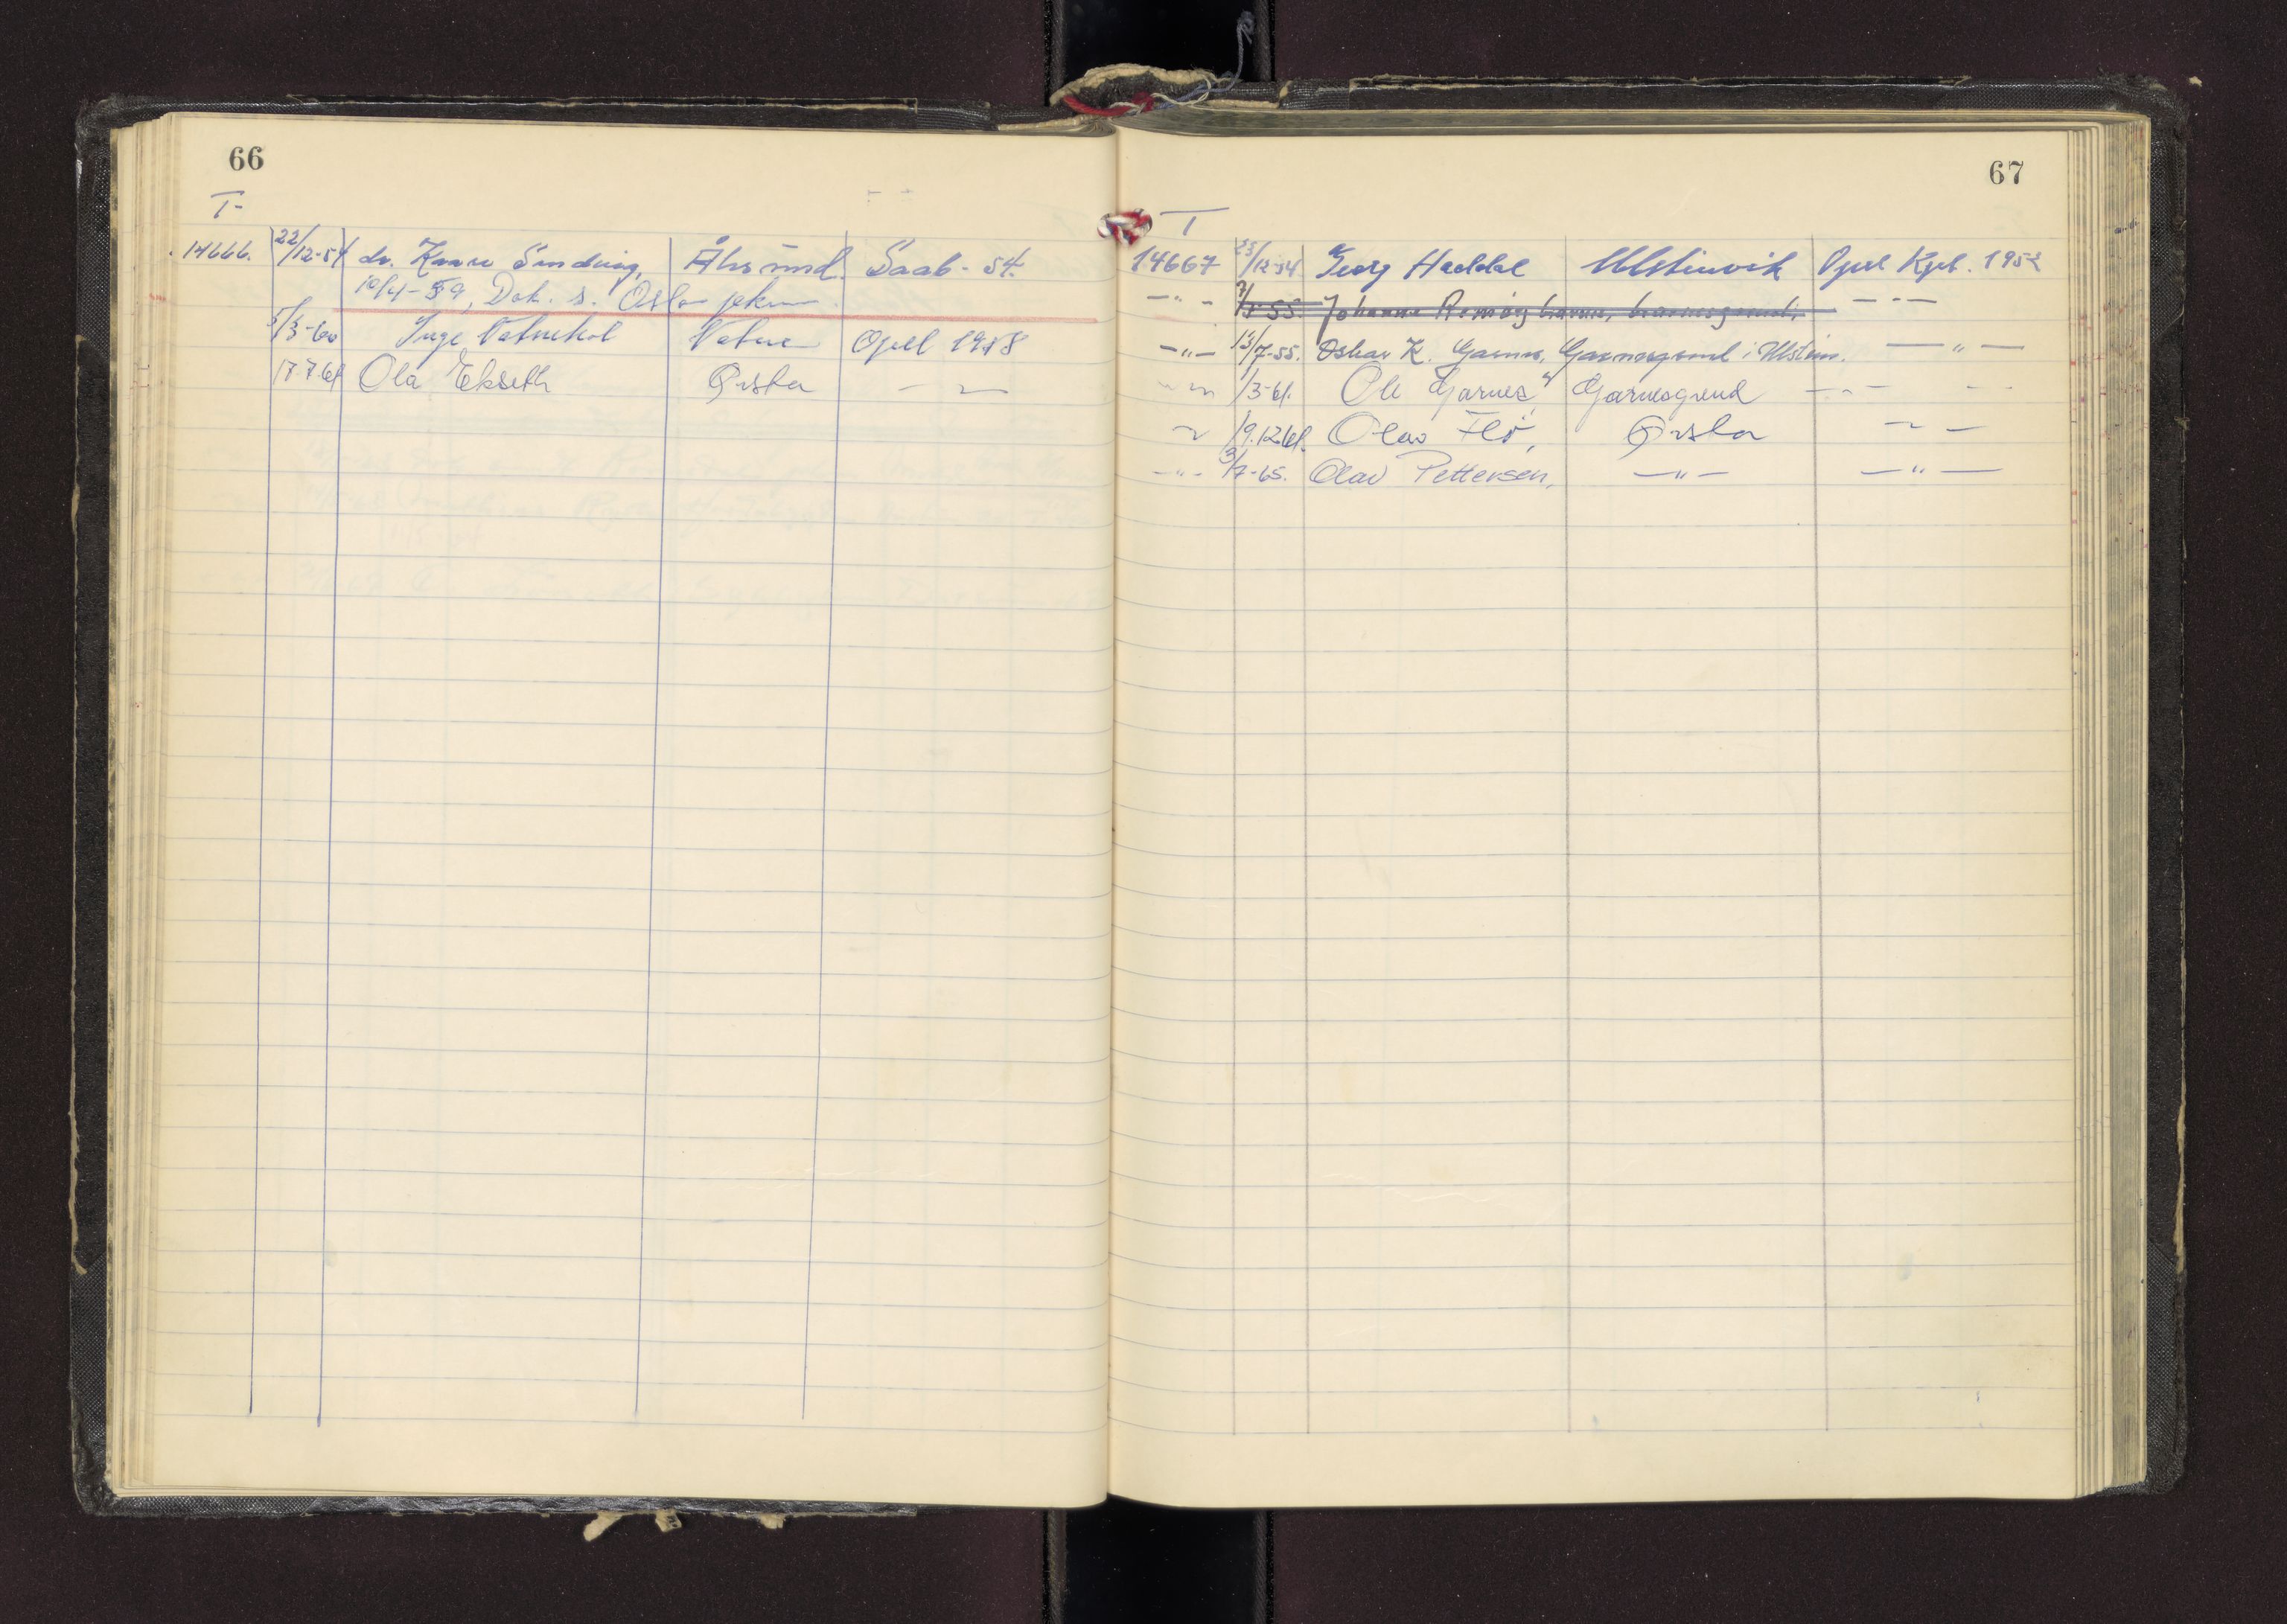 66
T-
14666. 22/12-54 dr. Kaare Sinding, Ålesund. Saab - 54.
10/4-59, Dok. s. Oslo
5/3-60 Inge Vatnehol Vatne Opel 1958
17.7.61 Ola Ekseth Ørsta — " —
67
T
14667 23/12-54 Georg Haddal Ulsteinvik Opel Kpt. 1952
— " —
— " — 13/7-55. Oskar K. Garnes, Garnesgrend i Ulstein. — " —
— " — 1/3-61. Ole Garnes, Garnesgrend — " —
— " — 19.12.61. Olav Flø, Ørsta — " —
— " — 3/7-65. Olav Pettersen, — " — — " —